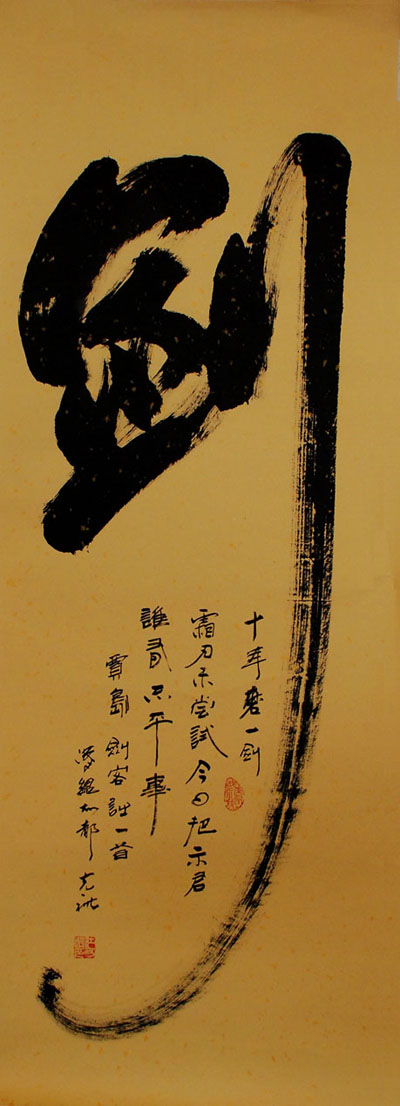 劍
十年磨一劍
霜刃未嘗試今日把示君
誰有不平事
賈島 劍客詩一首